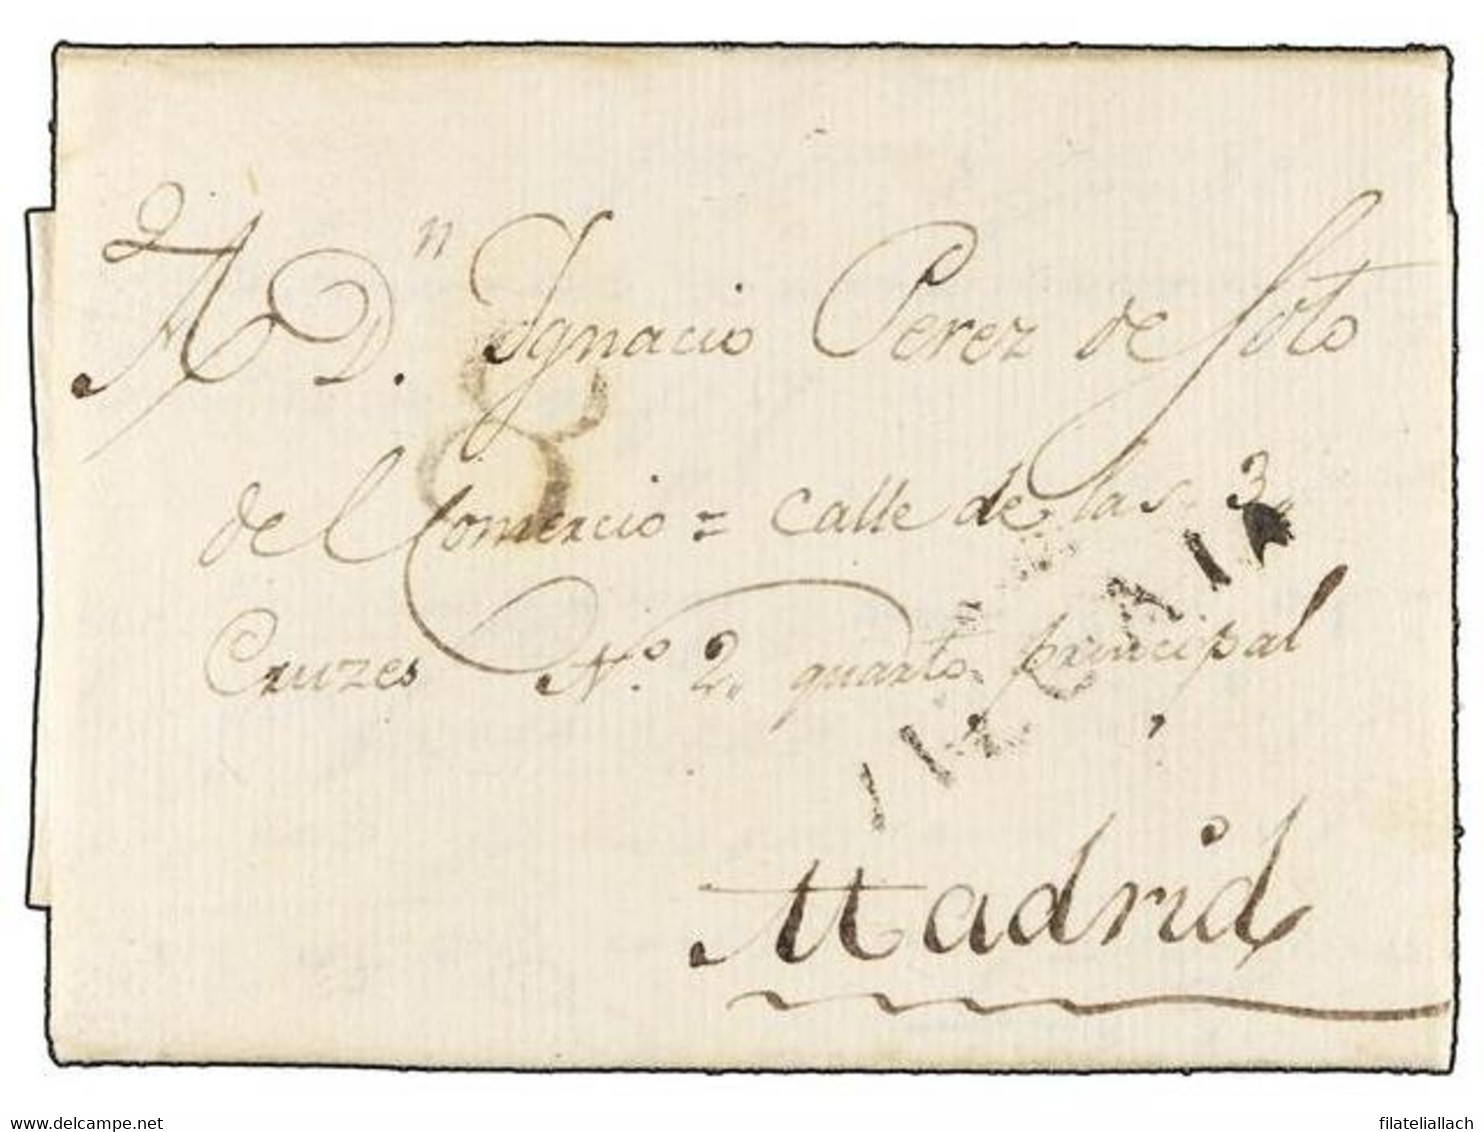 A D.n Ignacio Perez de Soto
8
de Comercio = calle de las 3,,
Cruzes Nº. 2,, quarto principal
Madrid
delcampe.net
filateliallach